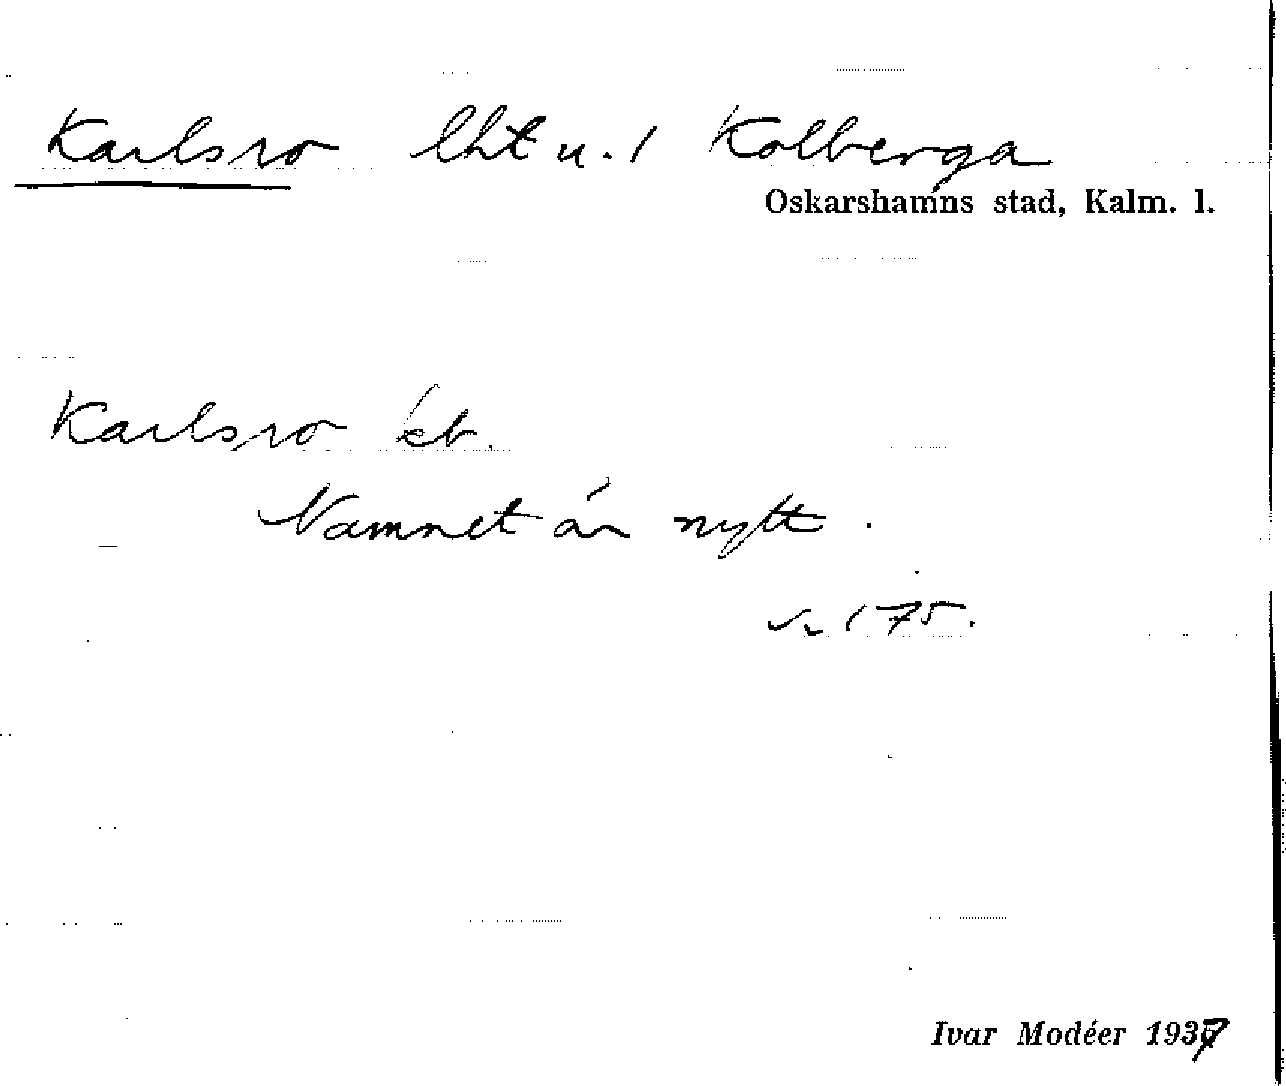 Karlsro lht u. 1 Kolberga
Oskarshamns stad, Kalm. l.
Karlsro
Namnet är nytt.
175.
Ivar Modéer 1937